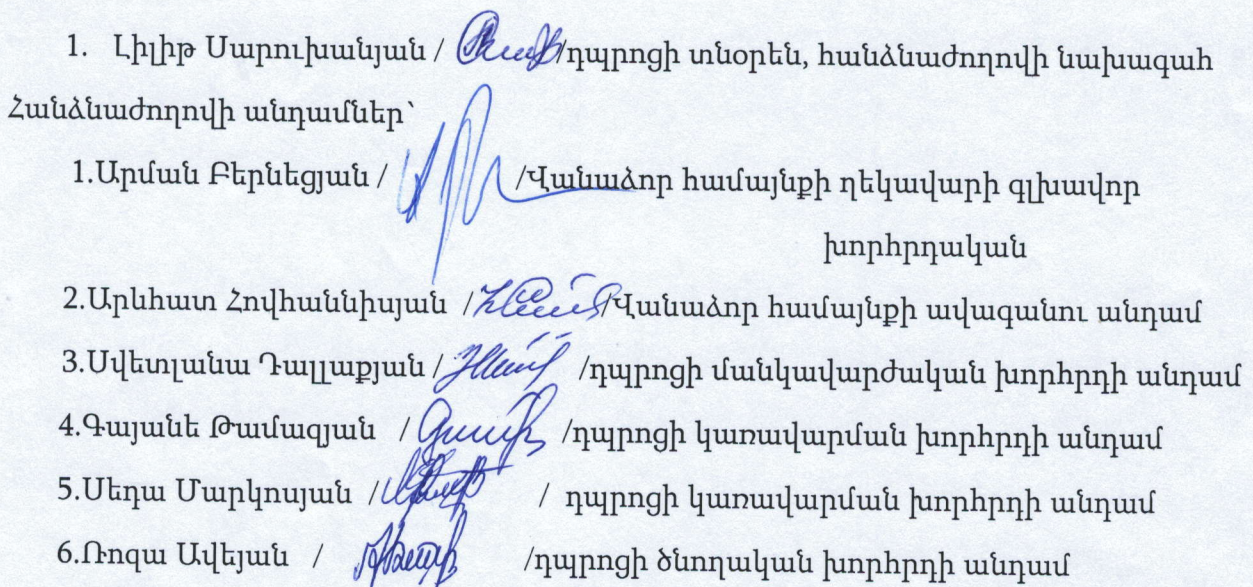 1. Լիլիթ Սարուխանյան / /դպրոցի տնօրեն, հանձնաժողովի նախագահ
Հանձնաժողովի անդամներ՝
1.Արման Բերնեցյան / /Վանաձոր համայնքի ղեկավարի գլխավոր
խորհրդական
2.Արևհատ Հովհաննիսյան / /Վանաձոր համայնքի ավագանու անդամ
3.Սվետլանա Դալլաքյան / /դպրոցի մանկավարժական խորհրդի անդամ
4.Գայանե Թամազյան / /դպրոցի կառավարման խորհրդի անդամ
5.Սեդա Մարկոսյան / / դպրոցի կառավարման խորհրդի անդամ
6.Ռոզա Ավեյան / /դպրոցի ծնողական խորհրդի անդամ